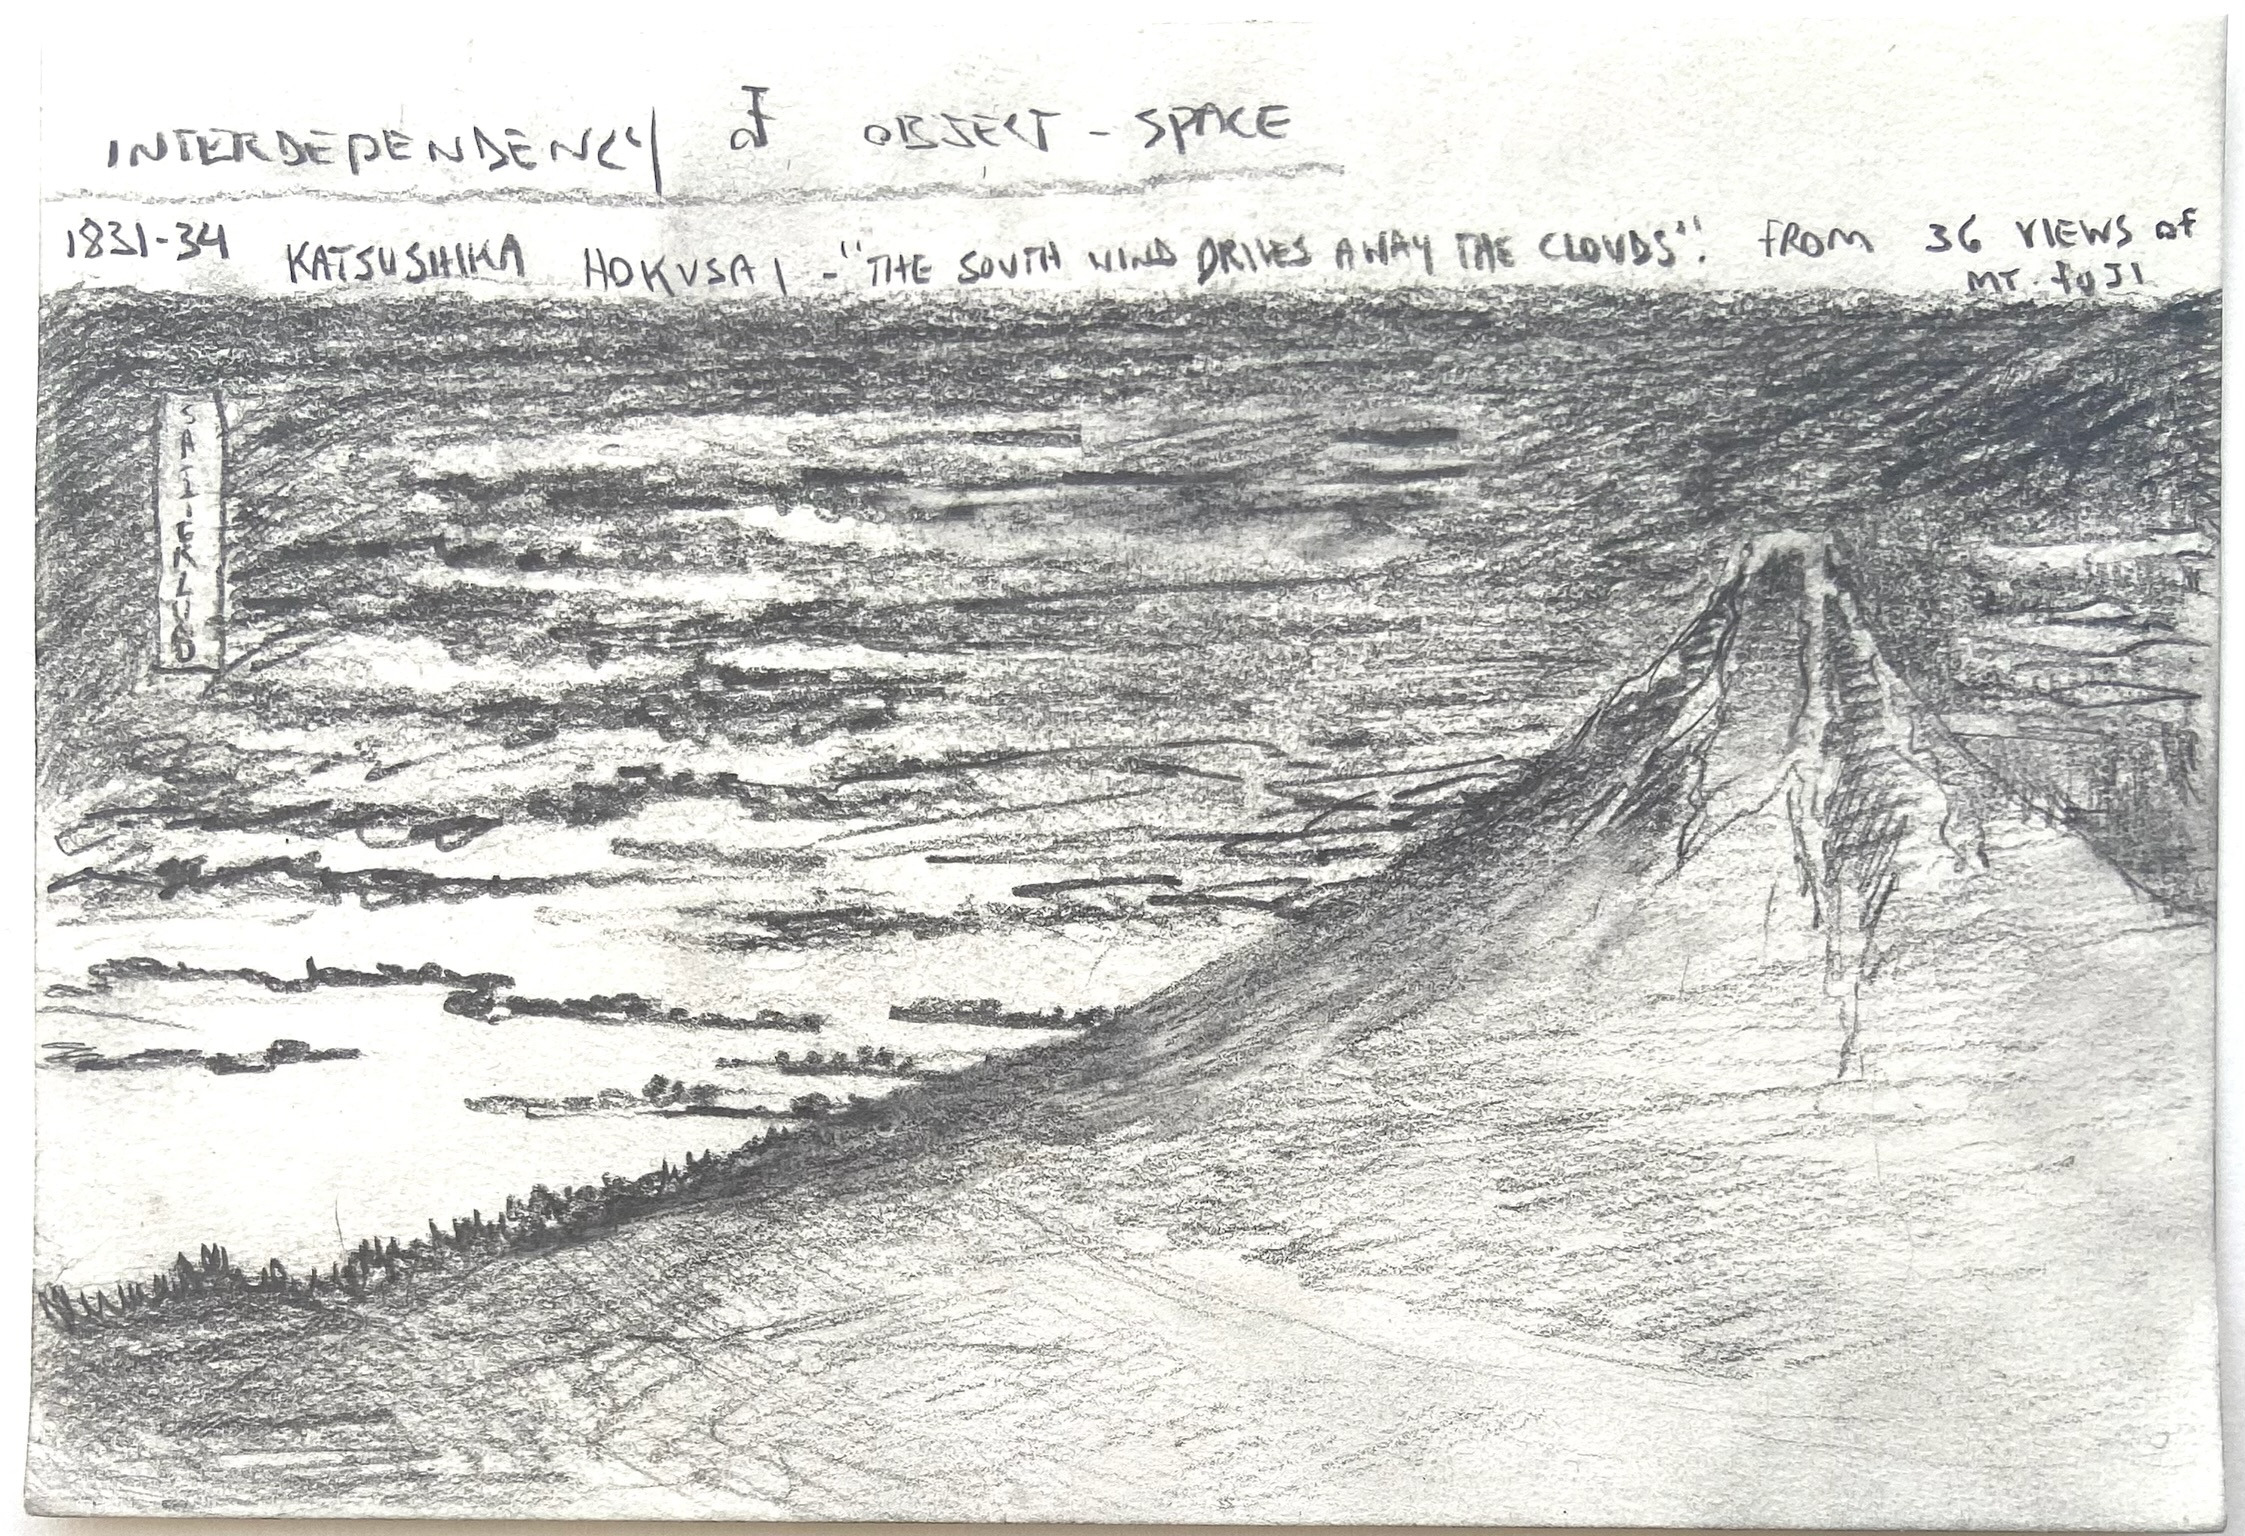 INTERDEPENDENCY of OBJECT - SPACE
1831-34 KATSUSHIKA HOKUSAI - "THE SOUTH WIND DRIVES AWAY THE CLOUDS". FROM 36 VIEWS of
MT. FUJI